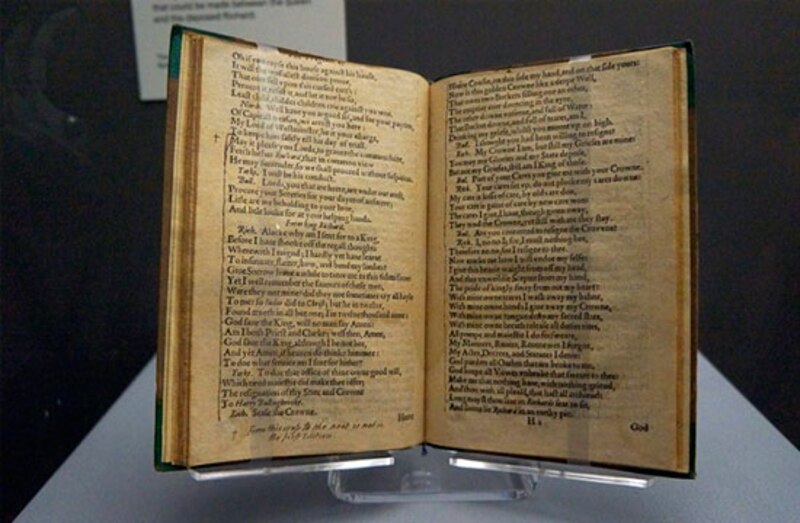 that could be made between the Queen
and the deposed Richard.
Oh if you rayse this house against his house,
It will the wofullest diuision proue,
That euer fell vpon this cursed earth:
Preuent it, resist it, and let it not be so,
Least child, childes children crie against you, woe.
North. Well haue you argued sir, and for your paynes,
Of Capitall treason, we arrest you here:
My Lord of Westminster, be it your charge,
To keepe him safely till his day of triall.
May it please you Lords, to graunt the commons suite,
Fetch hither Richard, that in common view
He may surrender, so we shall proceed without suspition.
Yorke. I will be his conduct.
Bull. Lords, you that are heere, are vnder our arrest,
Procure your Sureties for your dayes of answere;
Little are we beholding to your loue,
And little lookt for at your helping hands.
Enter king Richard.
Rich. Alacke why am I sent for to a King,
Before I haue shooke off the regall thoughts
Wherewith I reignd; I hardly yet haue learnt
To insinuate, flatter, bow, and bend my
Giue Sorrow leaue a while to tutor me to this submission:
Yet I well remember the fauours of these men,
Were they not mine? did they not sometimes cry all hayle
To me? so Iudas did to Christ; but he in twelue,
Found trueth in all but one; I in twelue thousand none:
God saue the King, will no man say Amen?
Am I both Priest and Clarke; well then, Amen,
God saue the King, although I be not hee,
And yet Amen, if heauen do thinke him mee:
To doe what seruice am I sent for hither?
Yorke. To doe that office of thine owne good will,
Which tired maiestie did make thee offer;
The resignation of thy State and Crowne
To Harry Bullingbrooke.
Rich. Seize the Crowne.
Heere
† From this cross to the next is not in
the first Edition
Heere Coosin, on this side my hand, and on that side yours:
Now is this golden Crowne like a deepe Well,
That owes two Buckets filling one an other,
The emptier euer dauncing in the ayre,
The other downe vnseene, and full of Water:
That Bucket downe, and full of teares, am I,
Drinking my griefes, whilst you mount vp on high.
Bull. I thought you had been willing to resigne?
Rich. My Crowne I am, but still my Griefes are mine:
You may my Glories and my State depose,
But not my Griefes, still am I King of those.
Bul. Part of your Cares you giue me with your Crowne.
Rich. Your cares set vp, do not plucke my cares downe:
My care is losse of care, by old care don,
Your care is gaine of care by new care won:
The cares I giue, I haue, though giuen away,
They tend the Crowne, yet still with me they stay.
Bull. Are you contented to resigne the Crowne?
Rich. I, no no I; for, I must nothing bee,
Therefore no, no, for I resigne to thee.
Now marke me how I will vndoe my selfe:
I giue this heauie waight from off my head,
And this vnweildie Scepter from my hand,
The pride of kingly sway from out my heart:
With mine owne teares I wash away my balme,
With mine owne hands I giue away my Crowne,
With mine owne tongue deny my sacred state,
With mine owne breath release all duties rites,
All pompe and maiestie I do forsweare,
My Mannors, Rents, Reuenewes I forgoe,
My Actes, Decrees, and Statutes I denie:
God pardon all Oathes that are broke to me,
God keepe all Vowes vnbroke that sweare to thee:
Make me that nothing haue, with nothing grieud,
And thou with all pleasd, that hast all atchieued:
Long mayst thou liue in Richards seat to sit,
And soone lie Richard in an earthy pit:
H 2
God